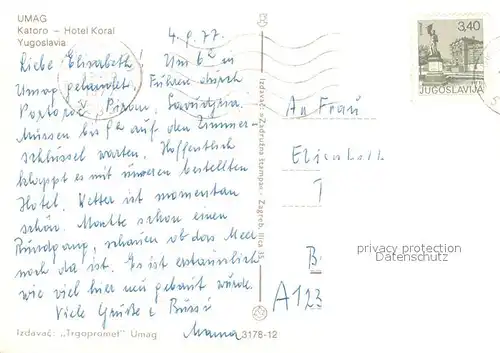 UMAG
Katoro – Hotel Koral
Yugoslavia
4.9.77
Liebe Elisabeth! Um 6ʰ in
Umag gelandet. Fuhren durch
Portorož, Piran, Savudrija.
Müssen bis 9ʰ auf den Zimmer-
schlüssel warten. Hoffentlich
klappt es mit unserem bestellten
Hotel. Wetter ist momentan
schön. Machte schon einen
Rundgang, schauen ob das Meer
noch da ist. Es ist erstaunlich
wie viel hier neu gebaut wurde.
Viele Grüße & Bussi
Mama
Izdavač: „Trgopromet" Umag
3178-12
Izdavač: »Zadružna štampa« - Zagreb, Ilica 35
3,40
JUGOSLAVIJA
An Frau
T
B
A123
privacy protection
Datenschutz